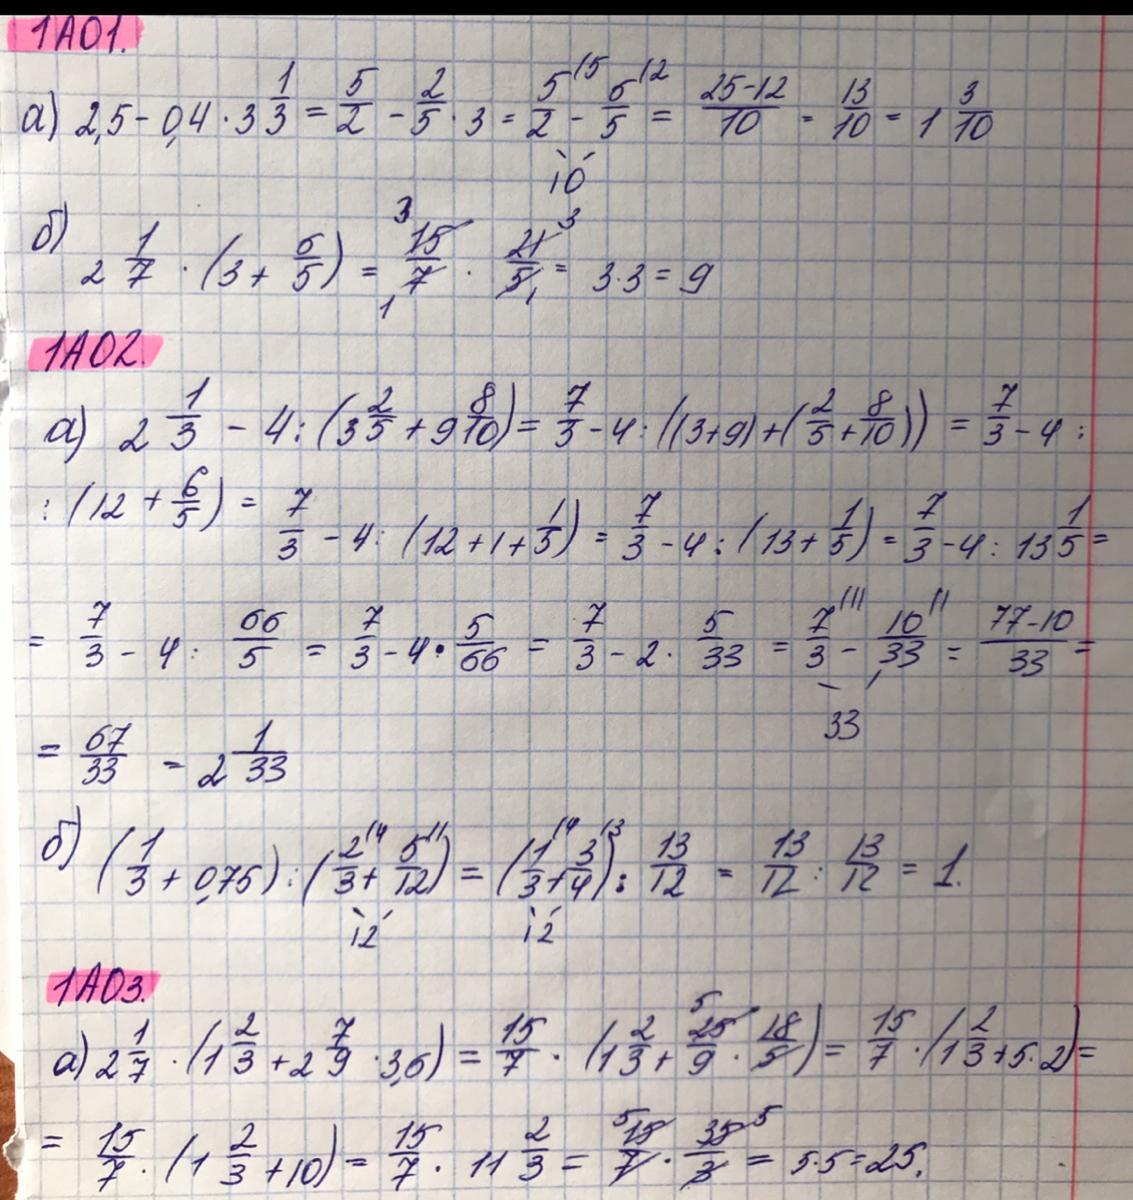 1A01.
а) 2,5 - 0,4 · 3 1/3 = 5/2 - 2/5 · 3 = 5/2 \5 - 6/5 \2 = (25-12)/10 = 13/10 = 1 3/10
10
б) 2 1/7 · (3 + 6/5) = 3 15/7 1 · 21/5 3 1 = 3·3 = 9
1A02.
а) 2 1/3 - 4 : (3 2/5 + 9 8/10) = 7/3 - 4 : ((3+9)+(2/5 + 8/10)) = 7/3 - 4 :
: (12 + 6/5) = 7/3 - 4 : (12+1+1/5) = 7/3 - 4 : (13+1/5) = 7/3 - 4 : 13 1/5 =
= 7/3 - 4 : 66/5 = 7/3 - 4 · 5/66 = 7/3 - 2 · 5/33 = 7/3 \11 - 10/33 \1 = (77-10)/33 =
33
= 67/33 = 2 1/33
б) (1/3 + 0,75) : (2/3 \4 + 5/12 \1) = (1/3 \4 + 3/4 \3) : 13/12 = 13/12 : 13/12 = 1.
12 12
1A03.
а) 2 1/7 · (1 2/3 + 2 7/9 · 3,6) = 15/7 · (1 2/3 + 5 25/9 · 18/5) = 15/7 · (1 2/3 + 5·2) =
= 15/7 · (1 2/3 + 10) = 15/7 · 11 2/3 = 5 15/7 · 35/3 5 = 5·5=25.